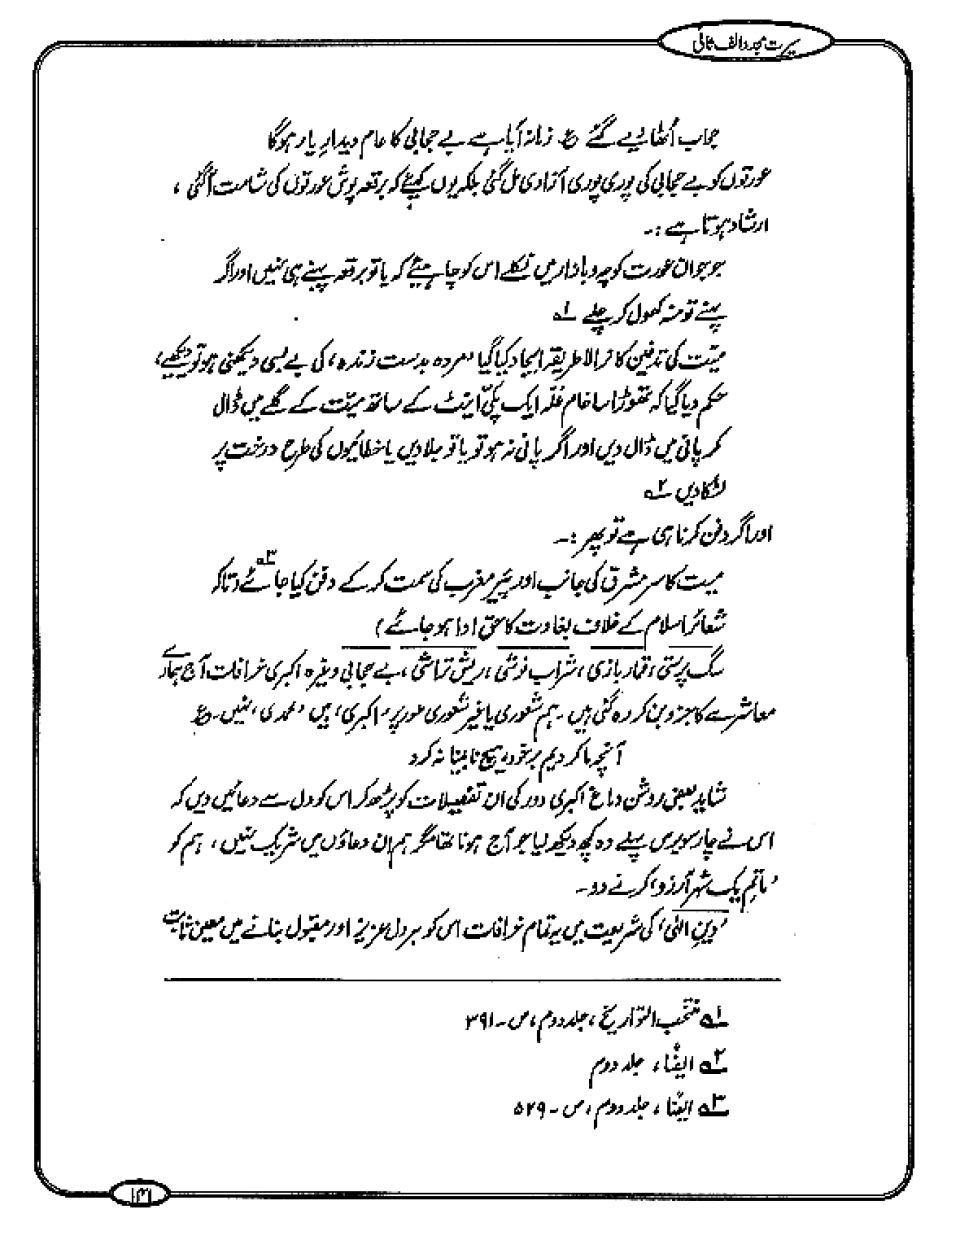 سیرت مجدد الف ثانی
حجاب اُٹھا دیے گئے ؏ زمانہ آیا ہے بے حجابی کا عام دیدارِ یار ہوگا
عورتوں کو بے حجابی کی پوری پوری آزادی مل گئی بلکہ یوں کہیئے کہ برقعہ پوش عورتوں کی شامت آگئی ،
ارشاد ہوتا ہے :۔
جو جوان عورت کوچہ و بازار میں نکلے اس کو چاہیئے کہ یا تو برقعہ پہنے ہی نہیں اور اگر
پہنے تو منہ کھول کر چلے ۱؎
میّت کی تدفین کا نرالا طریقہ ایجاد کیا گیا ’مردہ بدست زندہ‘ کی بے بسی دیکھنی ہو تو دیکھیے،
حکم دیا گیا کہ تھوڑا سا خام غلّہ ایک پکّی اینٹ کے ساتھ میّت کے گلے میں ڈال
کر پانی میں ڈال دیں اور اگر پانی نہ ہو تو یا تو جلا دیں یا خطائیوں کی طرح درخت پر
لٹکا دیں ۲؎
اور اگر دفن کرنا ہی ہے تو پھر :۔
میت کا سر مشرق کی جانب اور پیَر مغرب کی سمت کر کے دفن کیا جائے ۳؎ (تاکہ
شعائر اسلام کے خلاف بغاوت کا حق ادا ہو جائے)
سگ پرستی، قمار بازی، شراب نوشی، ریش تراشی، بے حجابی وغیرہ اکبری خرافات آج ہمارے
معاشرے کا جزو بن کر رہ گئی ہیں۔ ہم شعوری یا غیر شعوری طور پر ’اکبری‘ ہیں ’محمدی‘ نہیں۔ ؏
آنچہ ما کردیم بر خود ہیچ نابینا نہ کرد
شاید بعض روشن دماغ اکبری دور کی ان تفصیلات کو پڑھ کر اس کو دل سے دعائیں دیں کہ
اس نے چار سو برس پہلے وہ کچھ دیکھ لیا جو آج ہونا تھا مگر ہم ان دعاؤں میں شریک نہیں، ہم کو
’ماتم یک شہر آرزو‘ کرنے دو۔
’دینِ الٰہی‘ کی شریعت میں یہ تمام خرافات اس کو ہر دل عزیز اور مقبول بنانے میں معین ثابت
۱؎ منتخب التواریخ، جلد دوم، ص۔ ۳۹۱
۲؎ ایضًا، جلد دوم
۳؎ ایضًا، جلد دوم، ص۔ ۵۲۹
۱۳۱